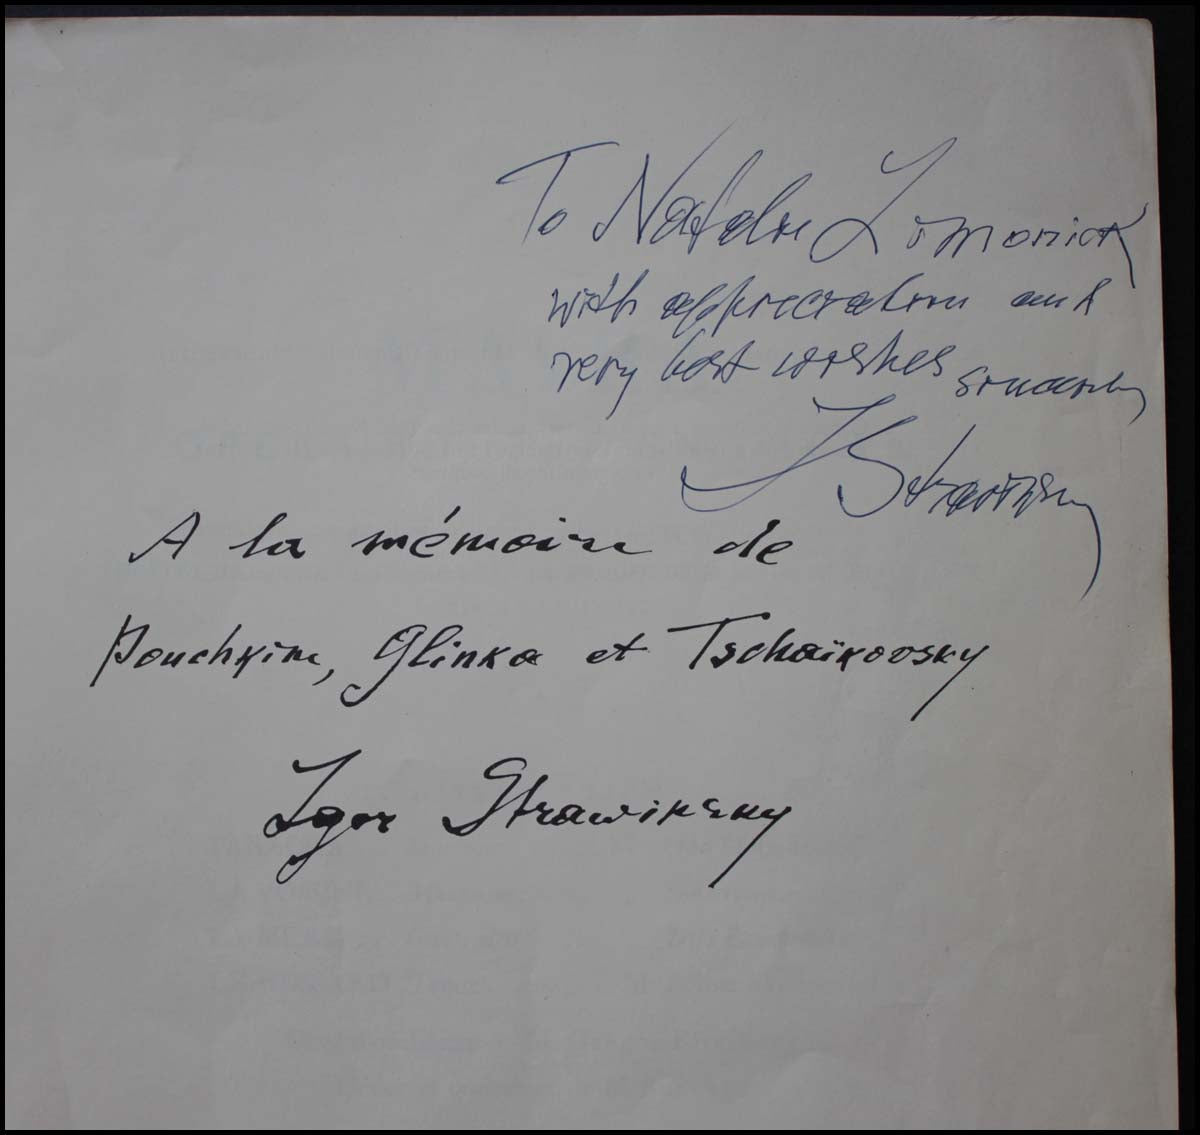 To Natalie Limonick
with appreciation and
very best wishes sincerely
I Stravinsky
A la mémoire de
Pouchkine, Glinka et Tschaïkovsky
Igor Strawinsky